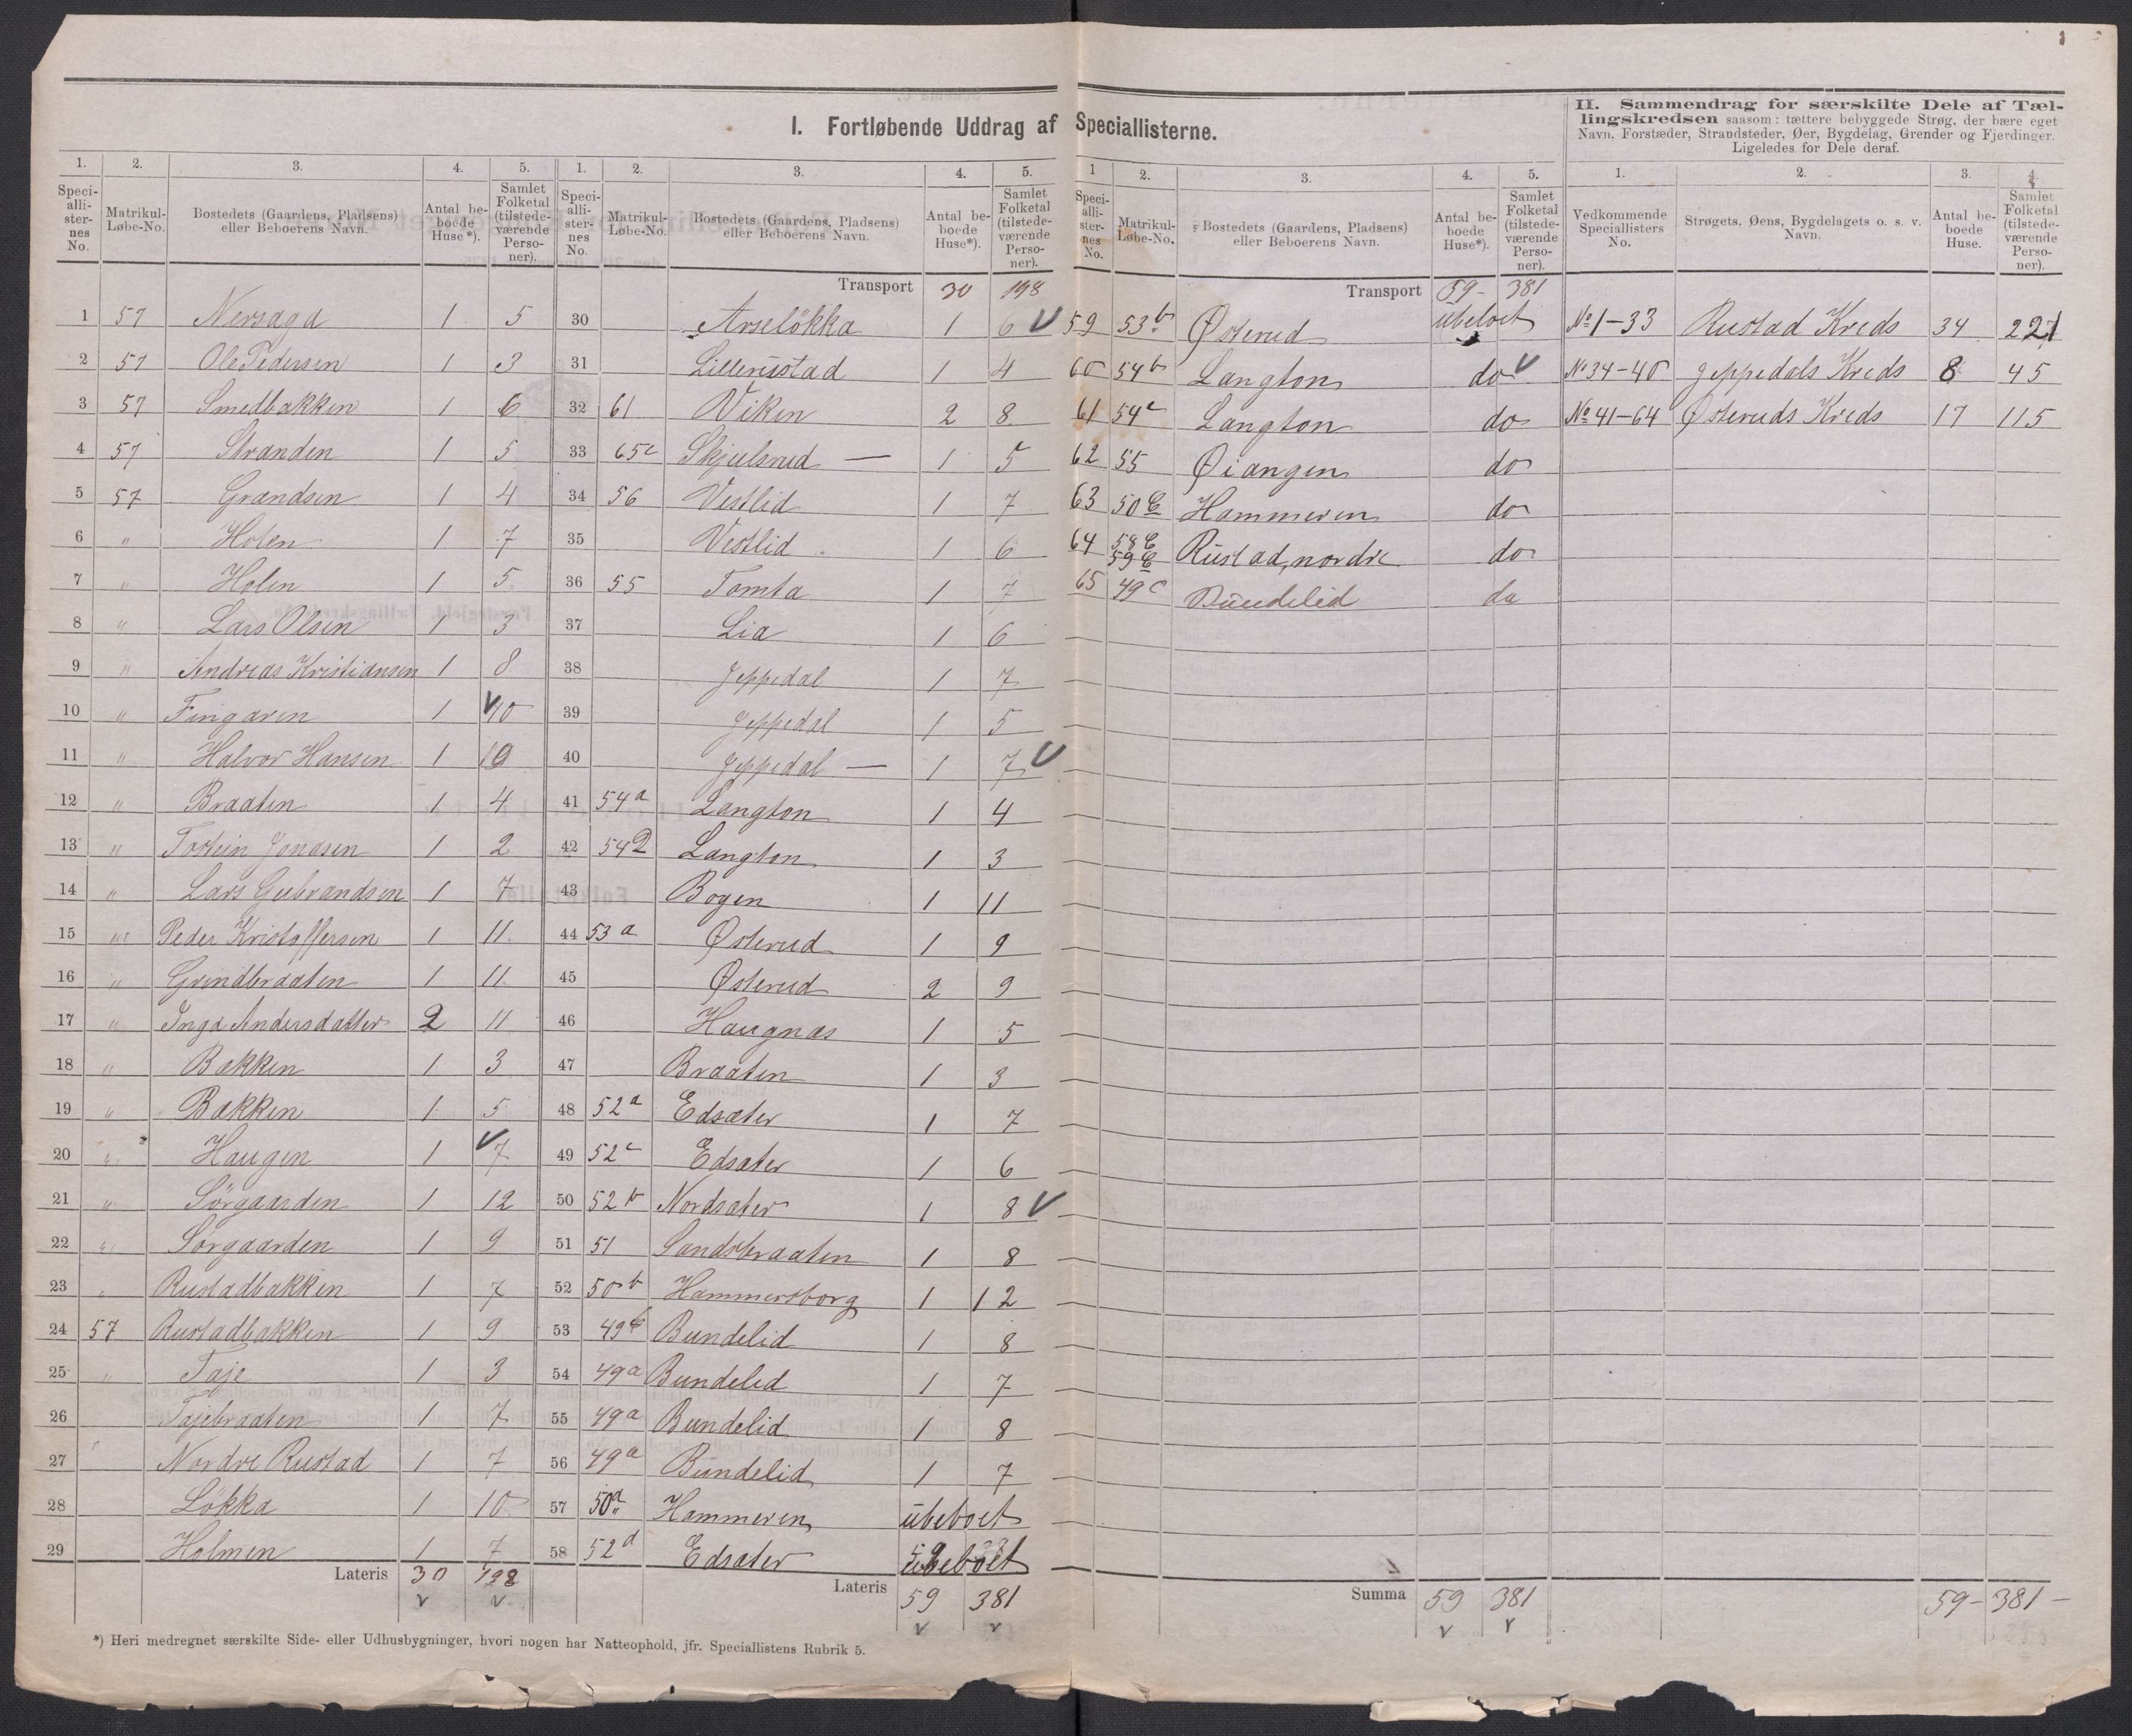 I. Fortløbende Uddrag af Speciallisterne.
II. Sammendrag for særskilte Dele af Tæl-
lingskredsen saasom: tættere bebyggede Strøg, der bære eget
Navn, Forstæder, Strandsteder, Øer, Bygdelag, Grender og Fjerdinger.
Ligeledes for Dele deraf.
1. 2. 3. 4. 5.
Speci-alli-ster-nes No. Matrikul-Løbe-No. Bostedets (Gaardens, Pladsens) eller Beboerens Navn. Antal be-boede Huse*). Samlet Folketal (tilstede-værende Perso-ner).
1 57 Nersaga 1 5
2 57 Ole Pedersen 1 3
3 57 Smedbakken 1 6
4 57 Stranden 1 5
5 57 Grændsen 1 4
6 " Holen 1 7
7 " Holen 1 5
8 " Lars Olsen 1 3
9 " Andreas Kristiansen 1 8
10 " Fingaren 1 10
11 " Halvor Hansen 1 10
12 " Braaten 1 4
13 " Tostein Jonasen 1 2
14 " Lars Gubrandsen 1 7
15 " Peder Kristoffersen 1 11
16 " Grindbraaten 1 11
17 " Inga Andersdatter 2 11
18 " Bakken 1 3
19 " Bakken 1 5
20 " Haugen 1 7
21 " Sörgaarden 1 12
22 " Sörgaarden 1 9
23 " Rustadbakken 1 7
24 57 Rustadbakken 1 9
25 " Taje 1 3
26 Tajebraaten 1 7
27 " Nordre Rustad 1 7
28 Lökka 1 10
29 Holmen 1 7
Lateris 30 198
1. 2. 3. 4. 5.
Speci-alli-ster-nes No. Matrikul-Løbe-No. Bostedets (Gaardens, Pladsens) eller Beboerens Navn. Antal be-boede Huse*). Samlet Folketal (tilstede-værende Perso-ner).
Transport 30 198
30 Arselökka 1 6
31 Lillerustad 1 4
32 61 Viken 2 8
33 65c Skjulsrud — 1 5
34 56 Vestlid 1 7
35 Vestlid 1 6
36 55 Tomta 1 7
37 Lia 1 6
38 Jeppedal 1 7
39 Jeppedal 1 5
40 Jeppedal — 1 7
41 54a Langton 1 4
42 54D Langton 1 3
43 Bogen 1 11
44 53a Østerud 1 9
45 Østerud 2 9
46 Haugnæs 1 5
47 Braaten 1 3
48 52a Edsater 1 7
49 52c Edsater 1 6
50 52b Nordsater 1 8
51 51 Sandsbraaten 1 8
52 50b Hammersborg 1 12
53 49b Bundelid 1 8
54 49a Bundelid 1 7
55 49a Bundelid 1 8
56 49a Bundelid 1 7
57 50a Hammeren ubeboet
58 52d Edsater ubeboet
Lateris 59 381
1 2. 3. 4. 5.
Speci-alli-ster-nes No. Matrikul-Løbe-No. Bostedets (Gaardens, Pladsens) eller Beboerens Navn. Antal be-boede Huse*). Samlet Folketal (tilstede-værende Perso-ner).
Transport 59- 381
59 53b Østerud ubeboet
60 54b Langton do
61 54c Langton do
62 55 Øiangen do
63 50C Hammeren do
64 58C 59C Rustad, nordre do
65 49c Bundelid do
Summa 59 381
1. 2. 3. 4.
Vedkommende Speciallisters No. Strøgets, Øens, Bygdelagets o. s. v. Navn. Antal be-boede Huse. Samlet Folketal (tilstede-værende Perso-ner).
No 1-33 Rustad Kreds 34 221
No 34-40 Jeppedals Kreds 8 45
No 41-64 Østeruds Kreds 17 115
59 - 381 -
*) Heri medregnet særskilte Side- eller Udhusbygninger, hvori nogen har Natteophold, jfr. Speciallistens Rubrik 5.